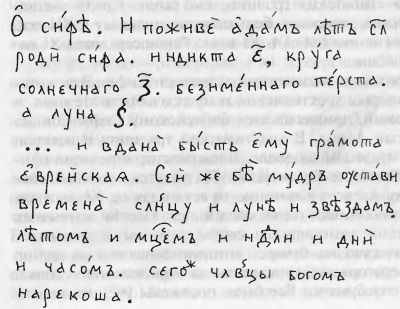 Ѻ҆ си́ѳѣ. И поживе̏ а҆да́мъ лѣтъ с҃л
роди сиѳа. индикта є҃, кру́га
солнечнаго з҃. безиме́ннаго пе́рста.
а луна ѕ҃.
... и вдана̀ бы́сть є҆му̀ гра́мота
є҆врейская. Сей же бѣ̀ му́дръ оустави
времена̀ слн҃цу и лунѣ̀ и ѕвѣ́здамъ.
лѣтомъ и мц҃емъ и нд҃лй и дни̏
и часо́м. сегоⷤ члв҃цы богомъ
нарекоша.